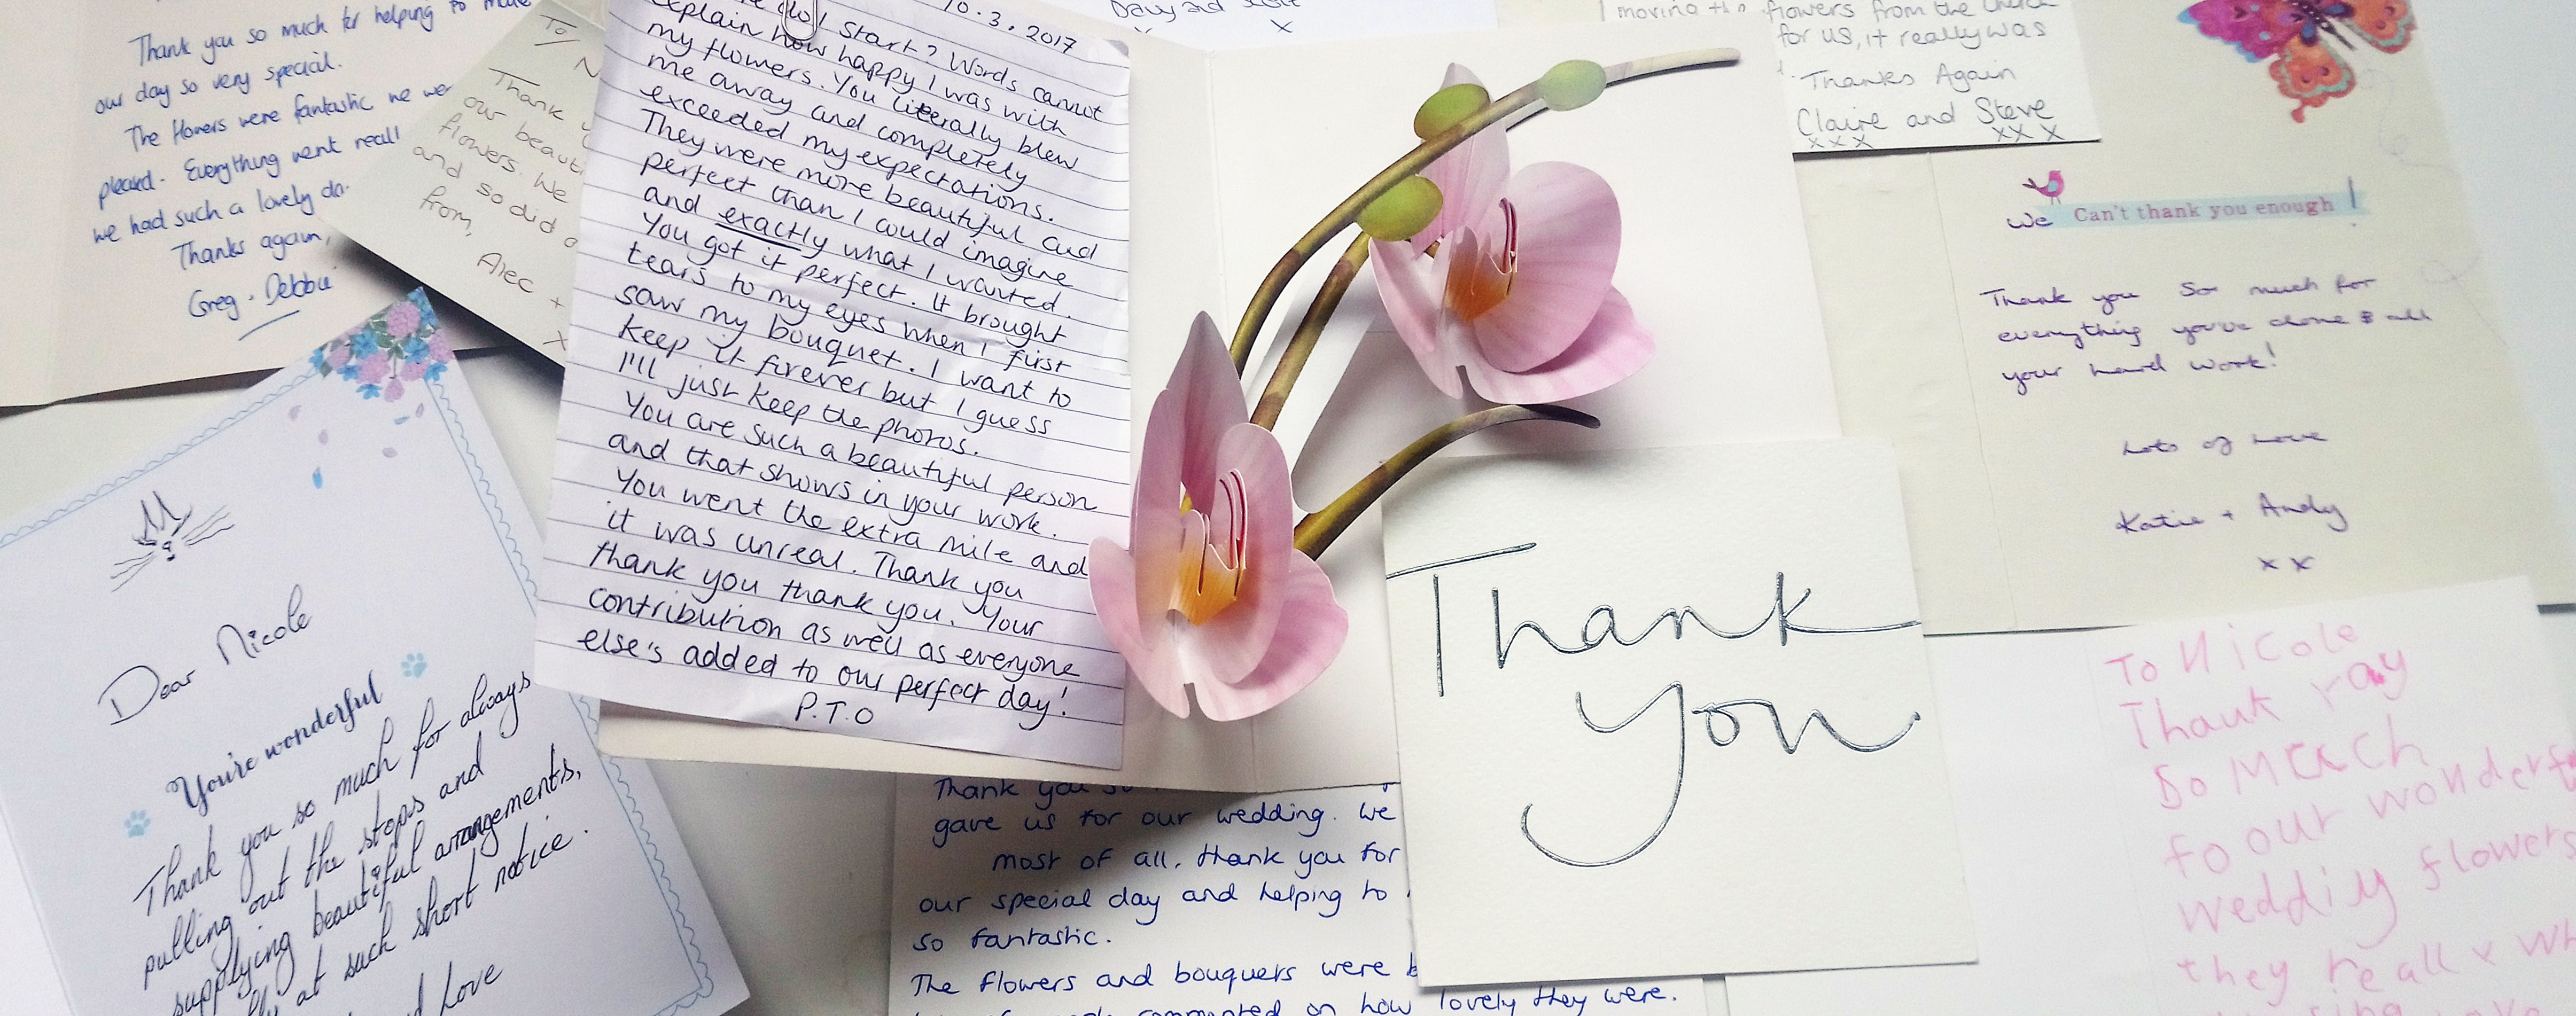 Thank you so much for helping to make
our day so very special.
The flowers were fantastic we wer
pleased. Everything went reall
we had such a lovely da
Thanks again,
Greg + Debbie
To/ N
Thank y
our beaut
flowers. We
and so did a
from,
Alec +
X
10.3.2017
do I start? Words cannot
explain how happy I was with
my flowers. You literally blew
me away and completely
exceeded my expectations.
They were more beautiful and
perfect than I could imagine
and exactly what I wanted.
You got it perfect. It brought
tears to my eyes when I first
saw my bouquet. I want to
keep it forever but I guess
I'll just keep the photos.
You are such a beautiful person
and that shows in your work.
You went the extra mile and
it was unreal. Thank you
thank you thank you. Your
contribution as well as everyone
else's added to our perfect day!
P.T.O
x
moving the flowers from the church
for us, it really was
Thanks Again
Claire and Steve
xxx xxx
We Can't thank you enough!
Thank you so much for
everything you've done & all
your hard work!
Lots of Love
Katie + Andy
x x
Dear Nicole
You're wonderful
Thank you so much for always
pulling out the stops and
supplying beautiful arrangements,
at such short notice.
Love
Thank you so
gave us for our wedding. We
most of all, thank you for
our special day and helping to
so fantastic.
The flowers and bouquets were b
commented on how lovely they were.
Thank
you
To Nicole
Thank yay
So Much
fo our wonderf
weddiy flowers
they reall x Wh